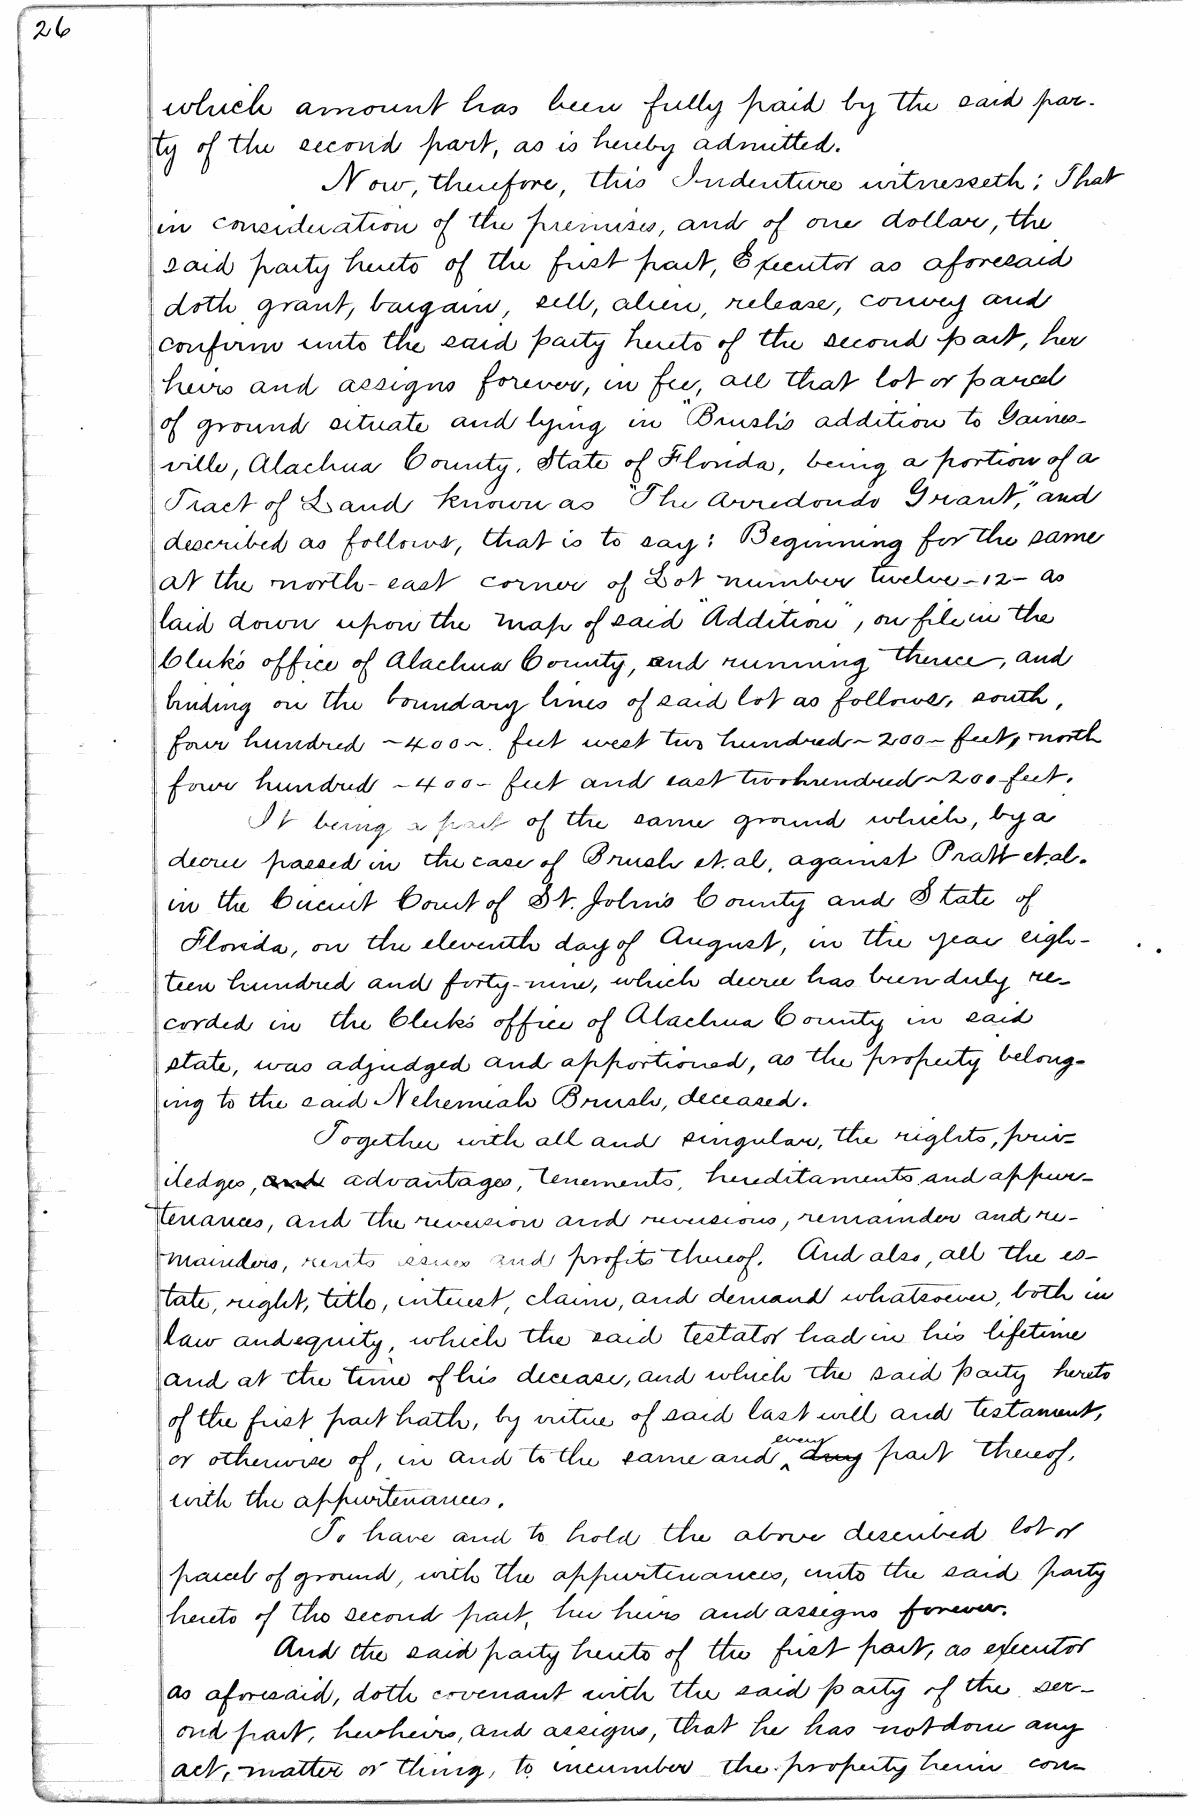 26
which amount has been fully paid by the said par-
ty of the second part, as is hereby admitted.
Now, therefore, this Indenture witnesseth; That
in consideration of the premises, and of one dollar, the
said party hereto of the first part, Executor as aforesaid
doth grant, bargain, sell, alien, release, convey and
confirm unto the said party hereto of the second part, her
heirs and assigns forever, in fee, all that lot or parcel
of ground situate and lying in "Brush's addition to Gaines-
ville, Alachua County, State of Florida, being a portion of a
Tract of Land known as "The Arredondo Grant," and
described as follows, that is to say: Beginning for the same
at the north-east corner of Lot number twelve -12- as
laid down upon the map of said "Addition", on file in the
Clerk's office of Alachua County, and running thence, and
binding on the boundary lines of said lot as follows, south,
four hundred -400-. feet west two hundred -200- feet, north
four hundred -400- feet and east two hundred -200 feet.
It being a part of the same ground which, by a
decree passed in the case of Brush et. al, against Pratt et. al.
in the Circuit Court of St. John's County and State of
Florida, on the eleventh day of August, in the year eigh-
teen hundred and forty-nine, which decree has been duly re-
corded in the Clerk's office of Alachua County in said
state, was adjudged and apportioned, as the property belong-
ing to the said Nehemiah Brush, deceased.
Together with all and singular, the rights, priv-
iledges, and advantages, tenements, hereditaments and appur-
tenances, and the reversion and reversions, remainder and re-
mainders, rents issues and profits thereof. And also, all the es-
tate, right, title, interest, claim, and demand whatsoever, both in
law and equity, which the said testator had in his lifetime
and at the time of his decease, and which the said party hereto
of the first part hath, by virtue of said last will and testament,
or otherwise of, in and to the same and every any part thereof,
with the appurtenances.
To have and to hold the above described lot or
parcel of ground, with the appurtenances, unto the said party
hereto of the second part, her heirs and assigns forever.
And the said party hereto of the first part, as executor
as aforesaid, doth covenant with the said party of the sec-
ond part, her heirs, and assigns, that he has not done any
act, matter or thing, to incumber the property herein con-